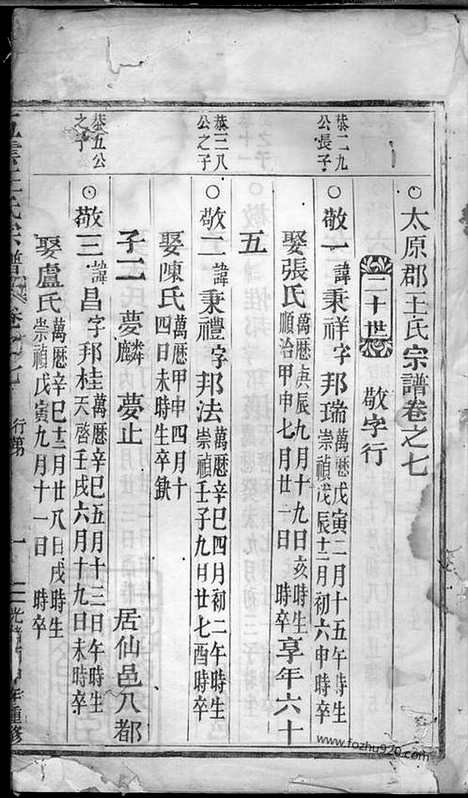 太原郡王氏宗譜卷之七
二十世 敬字行
恭二九公長子
○敬一諱秉祥字邦瑞萬曆戊寅二月十五午時生崇禎戊辰十二月初六申時卒
娶張氏萬曆庚辰九月十九日亥時生順治甲申七月廿二日時卒享年六十
五
恭三八公之子
○敬二諱秉禮字邦法萬曆辛巳四月初二午時生崇禎壬子九月廿七酉時卒
娶陳氏萬曆甲申四月十四日未時生卒缺
子二 夢麟 夢止 居仙邑八都
恭五公之子
○敬三諱昌字邦桂萬曆辛巳五月十三日午時生天啓壬戌六月十九日未時卒
娶盧氏萬曆辛巳十二月廿八日戌時生崇禎戊寅九月十一日時卒
王氏宗譜 卷之七 行第 一 光 年重修
www.fozhu920.com